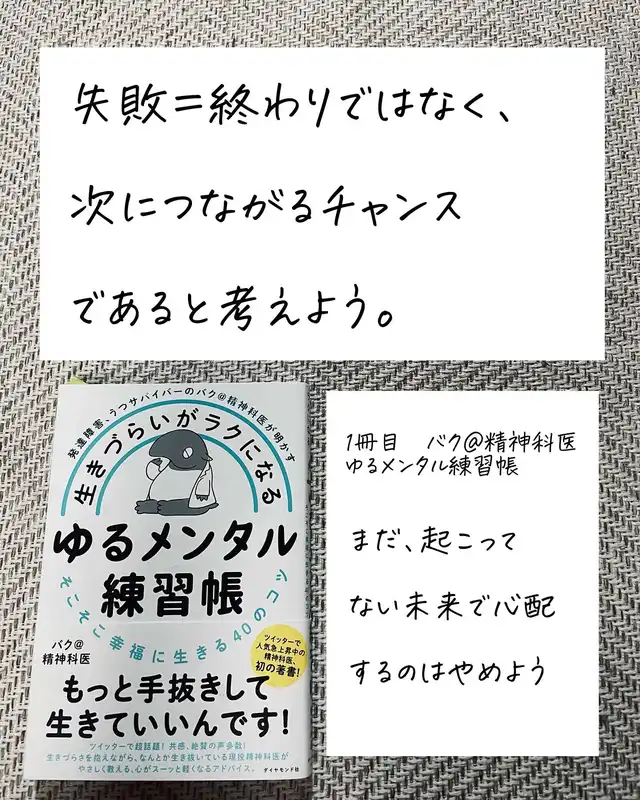 失敗=終わりではなく、
次につながるチャンス
であると考えよう。
発達障害、うつサバイバーのバク@精神科医が明かす
生きづらいがラクになる
ゆるメンタル
練習帳
そこそこ幸福に生きる40のコツ
バク@
精神科医
ツイッターで
人気急上昇中の
精神科医、
初の著書!
もっと手抜きして
生きていいんです!
ツイッターで超話題!共感、絶賛の声多数!
生きづらさを抱えながら、なんとか生き抜いている現役精神科医が
やさしく教える、心がスーッと軽くなるアドバイス。
ダイヤモンド社
1冊目 バク@精神科医
ゆるメンタル練習帳
まだ、起こって
ない未来で心配
するのはやめよう